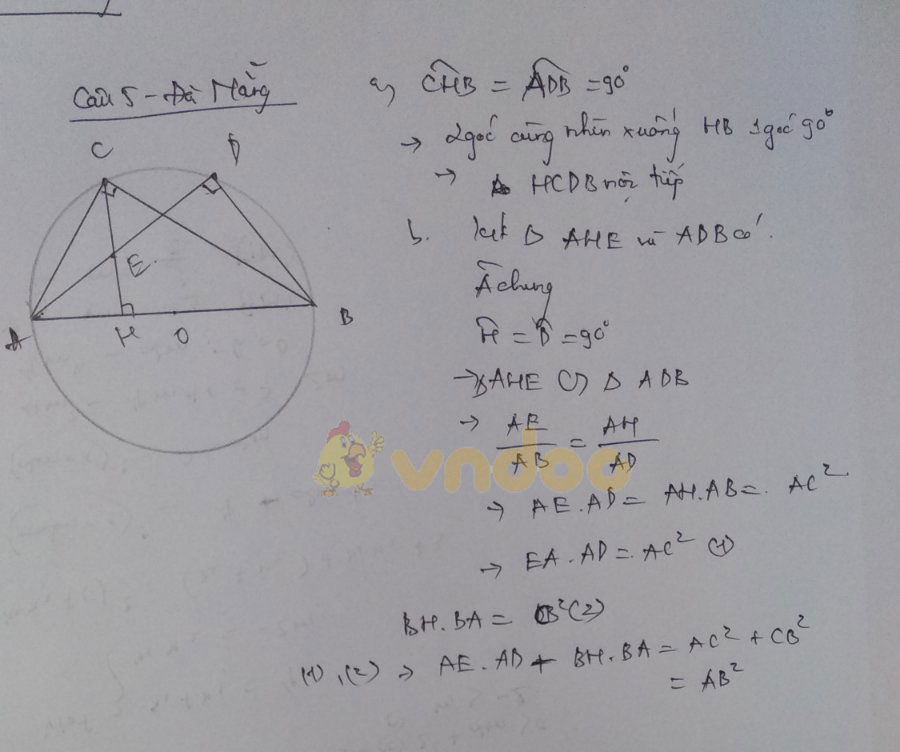 Câu 5 - Đà Nẵng
C D
E
A H O B
a, CHB = ADB = 90°
→ 2 góc cùng nhìn xuống HB 1 góc 90°
→ HCDB nội tiếp
b. xét Δ AHE và ADB có:
Â chung
Ĥ = D̂ = 90°
→ Δ AHE ∽ Δ ADB
→ AE/AB = AH/AD
→ AE.AD = AH.AB = AC²
→ EA.AD = AC² (1)
BH.BA = CB² (2)
(1), (2) → AE.AD + BH.BA = AC² + CB²
= AB²
vndoc